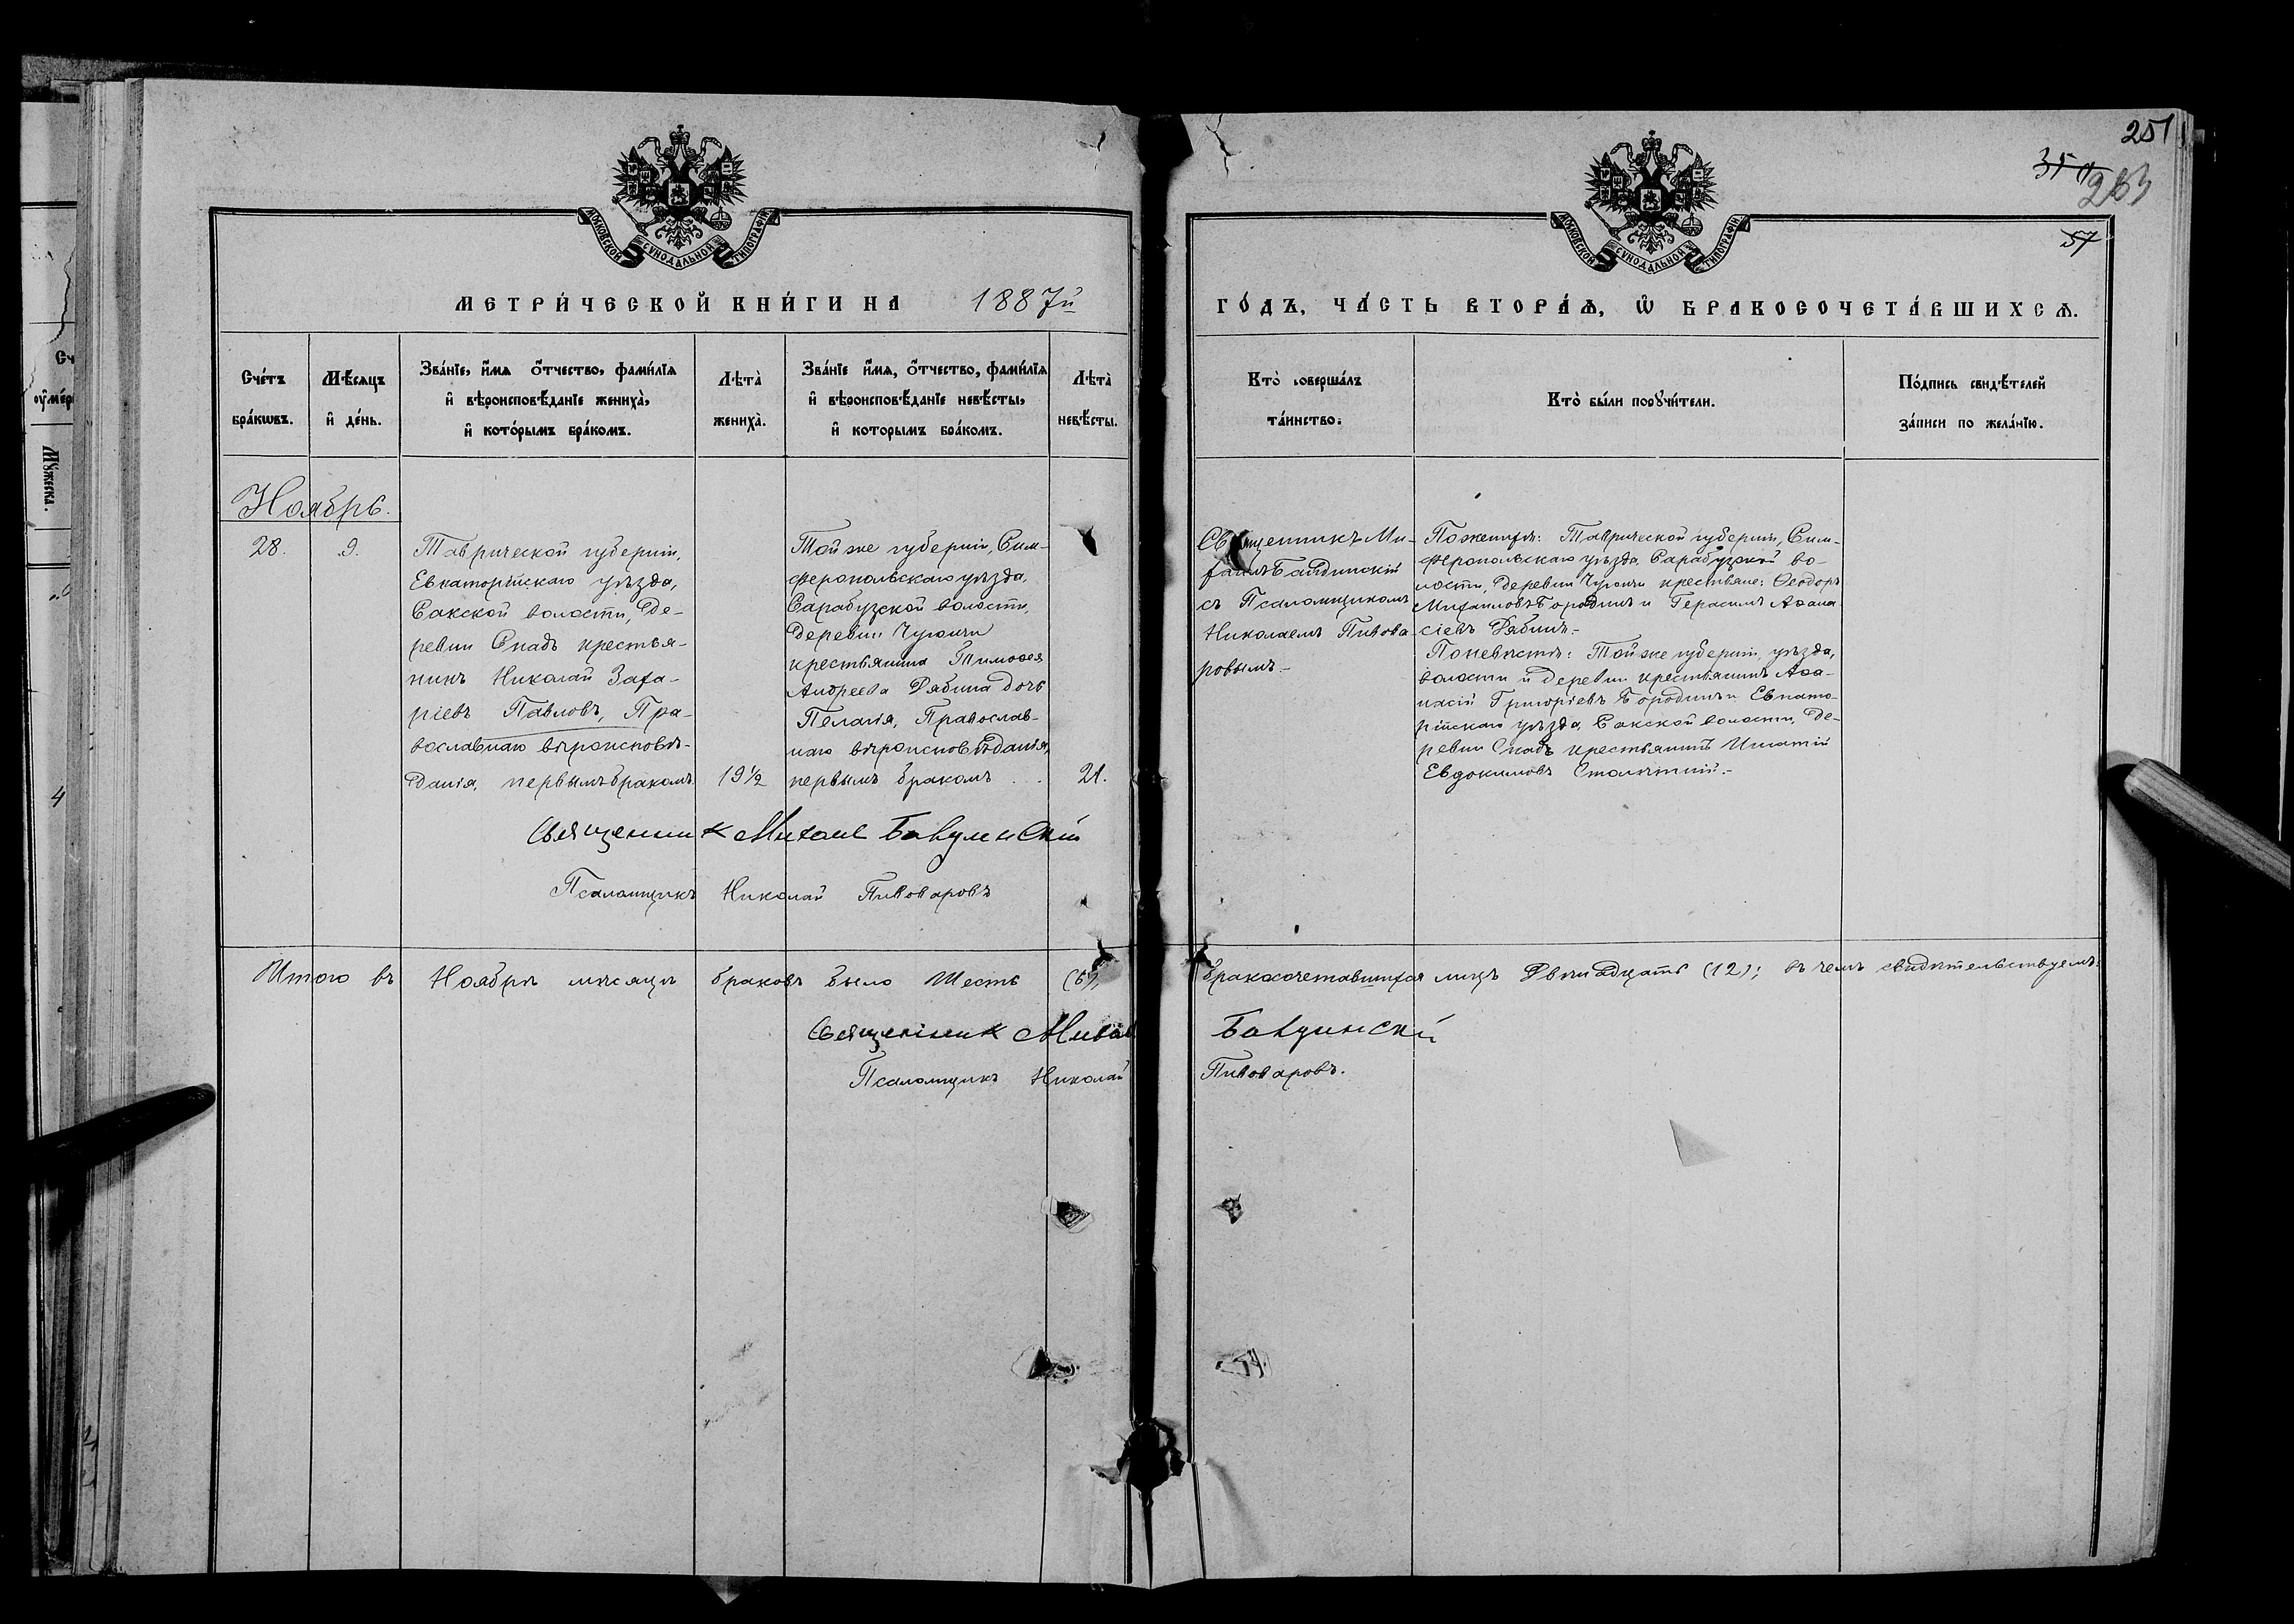 251
263
57
МОСКОВСКОЙ СѴНОДАЛЬНОЙ ТИПОГРАФІИ
МОСКОВСКОЙ СѴНОДАЛЬНОЙ ТИПОГРАФІИ
МЕТРИ́ЧЕСКОЙ КНИ́ГИ НА 1887й
ГО́ДЪ, ЧА́СТЬ ВТОРА́Ѧ, Ѡ҆ БРАКОСОЧЕТА́ВШИХСѦ.
Сче́тъ
бра́кѡвъ.
Мѣ́сяцъ
и҆ де́нь.
Зва́нїе, и҆́мя ѻ҆́тчество, фами́лїя
и҆ вѣроисповѣ́данїе жениха̀,
и҆ кото́рымъ бра́комъ.
Лѣта̀
жениха̀.
Зва́нїе и҆́мя, ѻ҆́тчество, фами́лїя
и҆ вѣроисповѣ́данїе невѣ́сты,
и҆ которымъ бра́комъ.
Лѣта̀
невѣ́сты.
Кто̀ соверша́лъ
та́инство.
Кто̀ бы́ли порꙋчи́тели.
По́дпись свидѣ́телей
за́писи по жела́нїю.
Ноябрь.
28.
9.
Таврической губерніи,
Евпаторійскаго уѣзда,
Сакской волости, де-
ревни Спадъ крестья-
нинъ Николай Заха-
ріевъ Павловъ, Пра-
вославнаго вѣроисповѣ-
данія, первымъ бракомъ.
19½
Той же губерніи, Сим-
феропольскаго уѣзда,
Сарабузской волости,
деревни Чуюнчи
крестьянина Тимофея
Андреева Рябина дочь
Пелагія, Православ-
наго вѣроисповѣданія,
первымъ бракомъ . .
21.
Священникъ Ми-
хаилъ Бавдинскій
съ Псаломщикомъ
Николаемъ Пивова-
ровымъ.-
По женихѣ: Таврической губерніи, Сим-
феропольскаго уѣзда, Сарабузской во-
лости, деревни Чуюнчи крестьяне: Ѳеодоръ
Михаиловъ Бородинъ и Герасимъ Аѳана-
сіевъ Рябинъ.-
По невѣстѣ: Той же губерніи, уѣзда,
волости и деревни крестьянинъ Аѳа-
насій Григоріевъ Бородинъ и Евпато-
рійскаго уѣзда, Сакской волости, де-
ревни Спадъ крестьянинъ Игнатій
Евдокимовъ Столѣтній.-
Священник Михаил Бавдинскій
Псаломщикъ Николай Пивоваровъ
Итого въ Ноябрѣ мѣсяцѣ браковъ было Шесть (6), бракосочетавшихся лицъ Двѣнадцать (12); въ чемъ свидѣтельствуемъ:
Священник Михаил Бавдинскій
Псаломщикъ Николай Пивоваровъ.